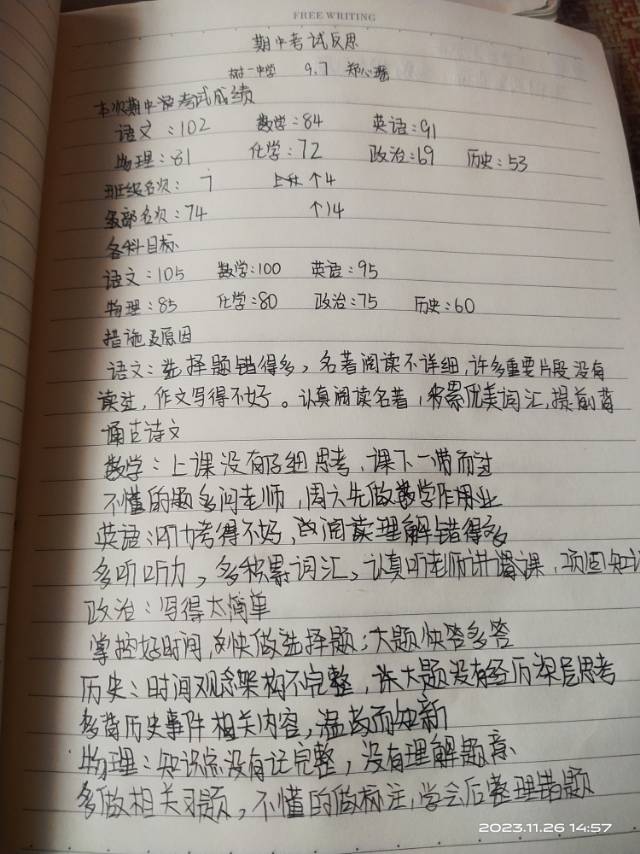 FREE WRITING
期中考试反思
树一中学 9.7 郑心
本次期中考试成绩
语文：102 数学：84 英语：91
物理：81 化学：72 政治：69 历史：53
班级名次：7 上升↑4
级部名次：74 ↑14
各科目标
语文：105 数学：100 英语：95
物理：85 化学：80 政治：75 历史：60
措施及原因
语文：选择题错得多，名著阅读不详细，许多重要片段没有
读过，作文写得不好。认真阅读名著，积累优美词汇，提前背
诵古诗文
数学：上课没有仔细思考，课下一带而过
不懂的题多问老师，周六先做数学作业
英语：听力考得不好，阅读理解错得多
多听听力，多积累词汇，认真听老师讲课，巩固知识
政治：写得太简单
掌控好时间，快做选择题，大题快答多答
历史：时间观念架构不完整，大题没有经历深层思考
多背历史事件相关内容，温故而知新
物理：知识点没有记完整，没有理解题意
多做相关习题，不懂的做标注，学会后整理错题
2023.11.26 14:57